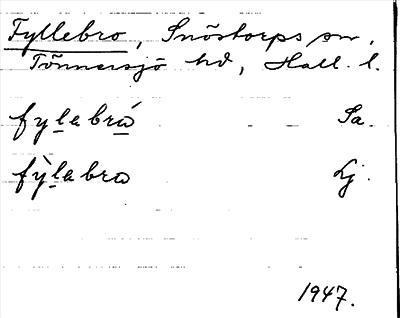 Fyllebro, Snöstorps sn,
Tönnersjö hd, Hall. l.
fylebrá Sa.
fỳlebra Lj.
1947.